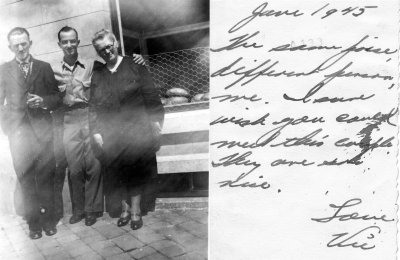 June 1945
The same pose
different person,
me. I sure
wish you could
meet this couple.
They are so
nice.
Love
Vic